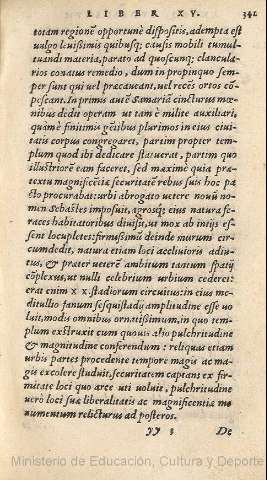 LIBER XV. 342
totam regionē opportunè dispositis, adempta est
uulgo leuißimis quibusq; causis mobili tumul-
tuandi materia, parato ad quoscunq; clancula-
rios conatus remedio, dum in propinquo sem-
per sunt qui uel præcaueant, uel recēs ortos cō-
pescant. In primis autē Samariā cincturus mœ-
nibus dedit operam ut tam è milite auxiliari,
quàm è finitimis gētibus plurimos in eius ciui-
tatis corpus congregaret, partim propter tem-
plum quod ibi dedicare statuerat, partim quo
illustriorē eam faceret, sed maximè quia præ-
textu magnificētiæ securitatē rebus suis hoc pa
cto procurabat: urbi abrogato uetere nouū no-
men Sebastēs imposuit, agrosq; eius natura fe-
races habitatoribus diuisit, ut mox ab initijs es-
sent locupletes: firmißimū deinde murum cir-
cumdedit, natura etiam loci accliuioris adiu-
tus, & præter ueterē ambitum tantum spatij
cōplexus, ut nulli celebrium urbium cederet:
erat enim XX. stadiorum circuitus: in eius me-
ditullio fanum sesquistadij amplitudine esse uo
luit, modis omnibus ornatißimum, in quo tem-
plum extruxit cum quouis alio pulchritudine
& magnitudine conferendum: reliquas etiam
urbis partes procedente tempore magis ac ma-
gis excolere studuit, securitatem captans ex fir-
mitate loci quo arce uti uoluit, pulchritudine
uerò loci suæ liberalitatis ac magnificentiæ mo
numentum relicturus ad posteros.
yy 3 De
Ministerio de Educación, Cultura y Deporte